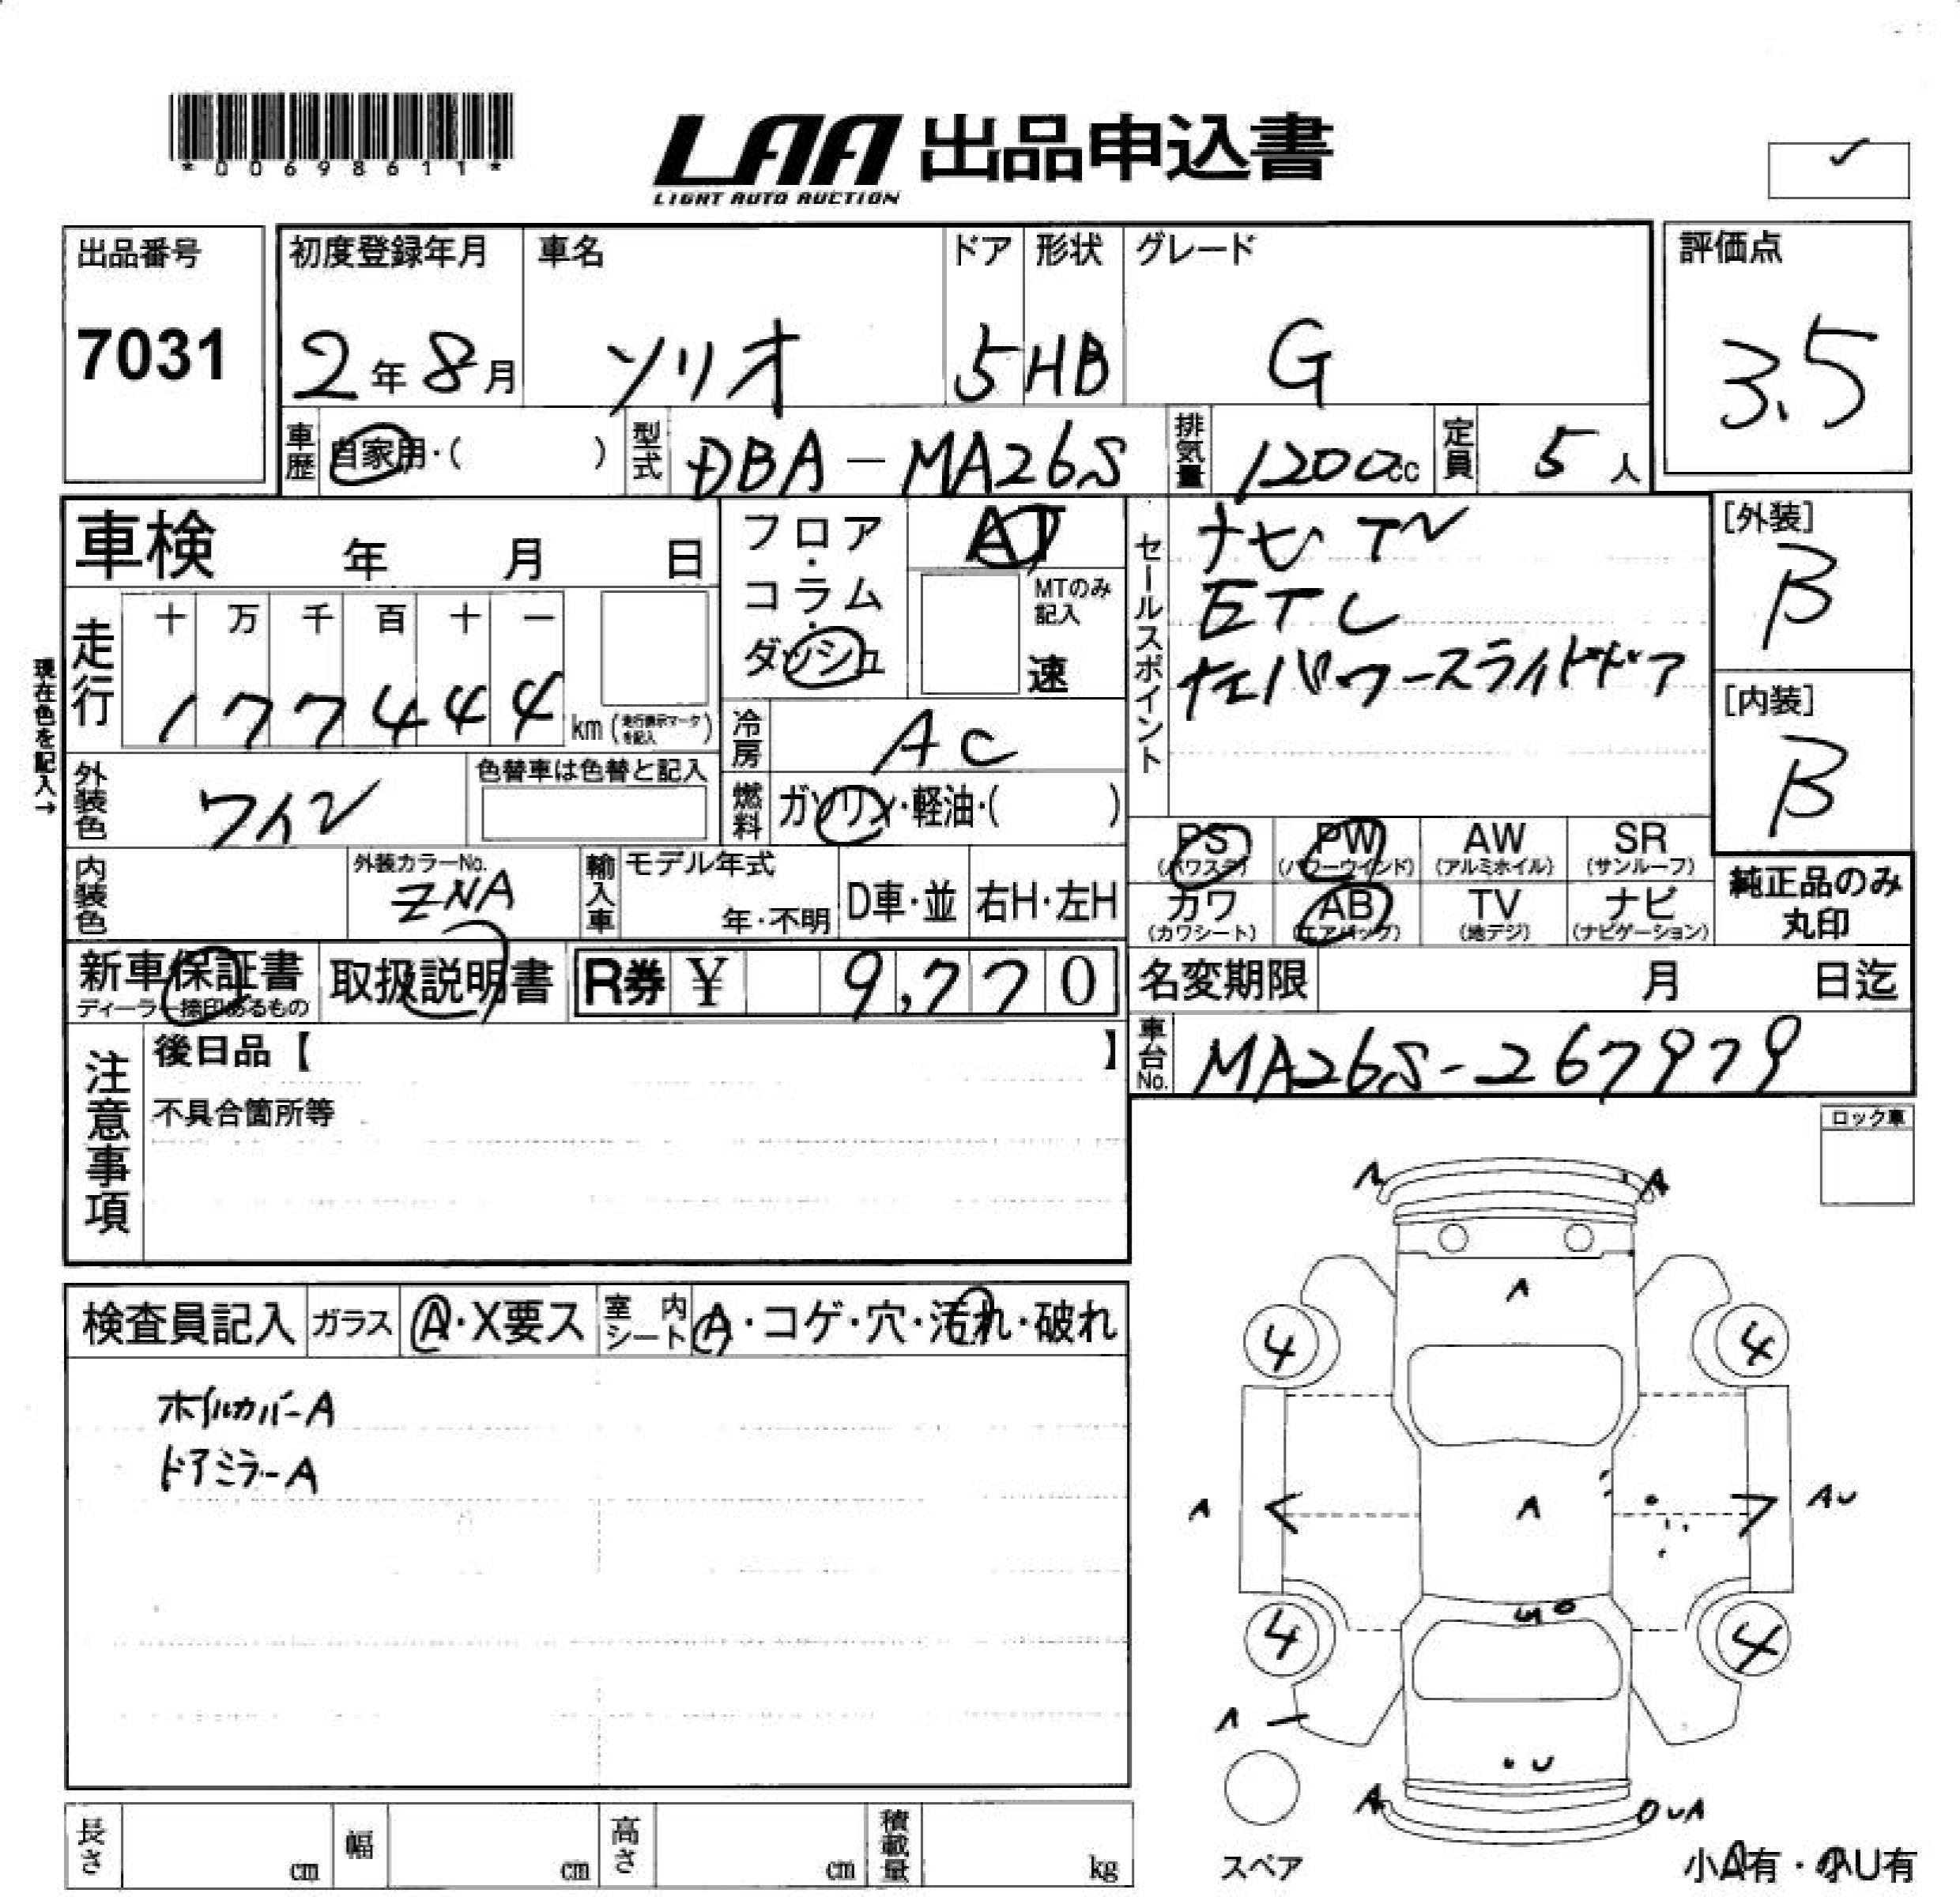 *00698611*
LAA 出品申込書
LIGHT AUTO AUCTION
✓
出品番号 初度登録年月 車名 ドア 形状 グレード 評価点
7031 2年8月 ソリオ 5 HB G 3.5
車歴 自家用・( ) 型式 DBA-MA26S 排気量 1200cc 定員 5人
車検 年 月 日
フロア・コラム・ダッシュ AT
MTのみ記入
速
セールスポイント
ナビTV
ETC
左パワースライドドア
[外装]
B
[内装]
B
現在色を記入→
走行 十 万 千 百 十 一
177444 km (走行表示マークを記入)
冷房 AC
外装色 ワイン 色替車は色替と記入
燃料 ガソリン・軽油・( )
PS (パワステ) PW (パワーウインド) AW (アルミホイル) SR (サンルーフ)
カワ (カワシート) AB (エアバッグ) TV (地デジ) ナビ (ナビゲーション)
純正品のみ丸印
内装色 外装カラーNo. ZNA 輸入車 モデル年式 年・不明 D車・並 右H・左H
新車保証書 ディーラー捺印あるもの 取扱説明書 R券 ¥ 9,770
名変期限 月 日迄
車台No. MA26S-267979
注意事項
後日品【 】
不具合箇所等
ロック車
検査員記入 ガラス A・X要ス 室内シート A・コゲ・穴・汚れ・破れ
ホイルカバーA
ドアミラーA
A A
A
4 4
A A AU
4 4
A
・U
A UA
スペア
小A有・小U有
長さ cm 幅 cm 高さ cm 積載量 kg